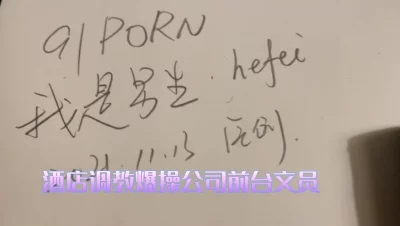 91PORN
我是男生.hefei
21.11.13
酒店调教爆操公司前台文员